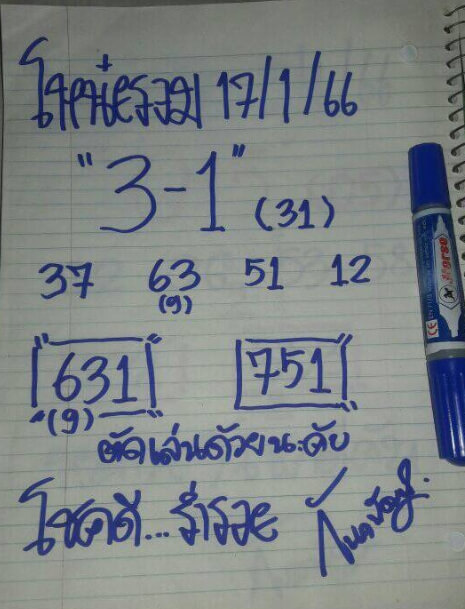 โชคนี่รวม 17/1/66
"3-1" (31)
37 63 51 12
(9)
631 751
(9)
ตัดเล่นด้วยนะคับ
โชคดี... ร่ำรวย
Horse
CE